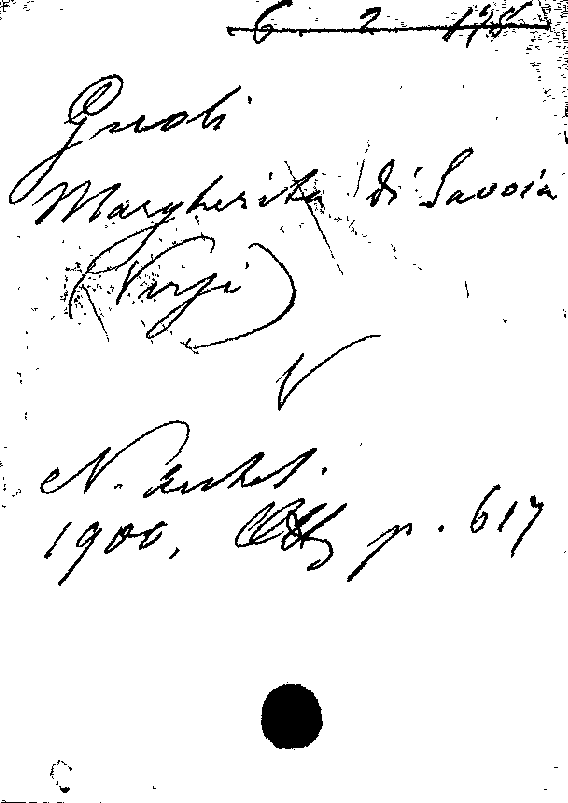 6. 2. 178
Gnoli
Margherita di Savoia
(Versi)
V
N. Antol.
1900, p. 617